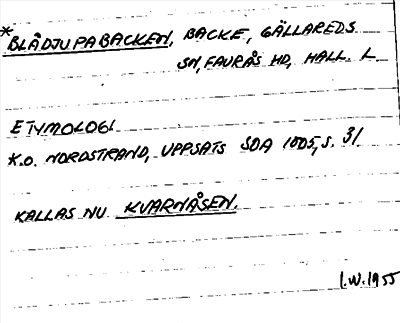 *BLÅDJUPABACKEN, BACKE, GÄLLAREDS
SN, FAURÅS HD, HALL. L.
ETYMOLOGI
K.O. NORDSTRAND, UPPSATS SOA 1005, S. 31.
KALLAS NU KVARNÅSEN.
I.W. 1955